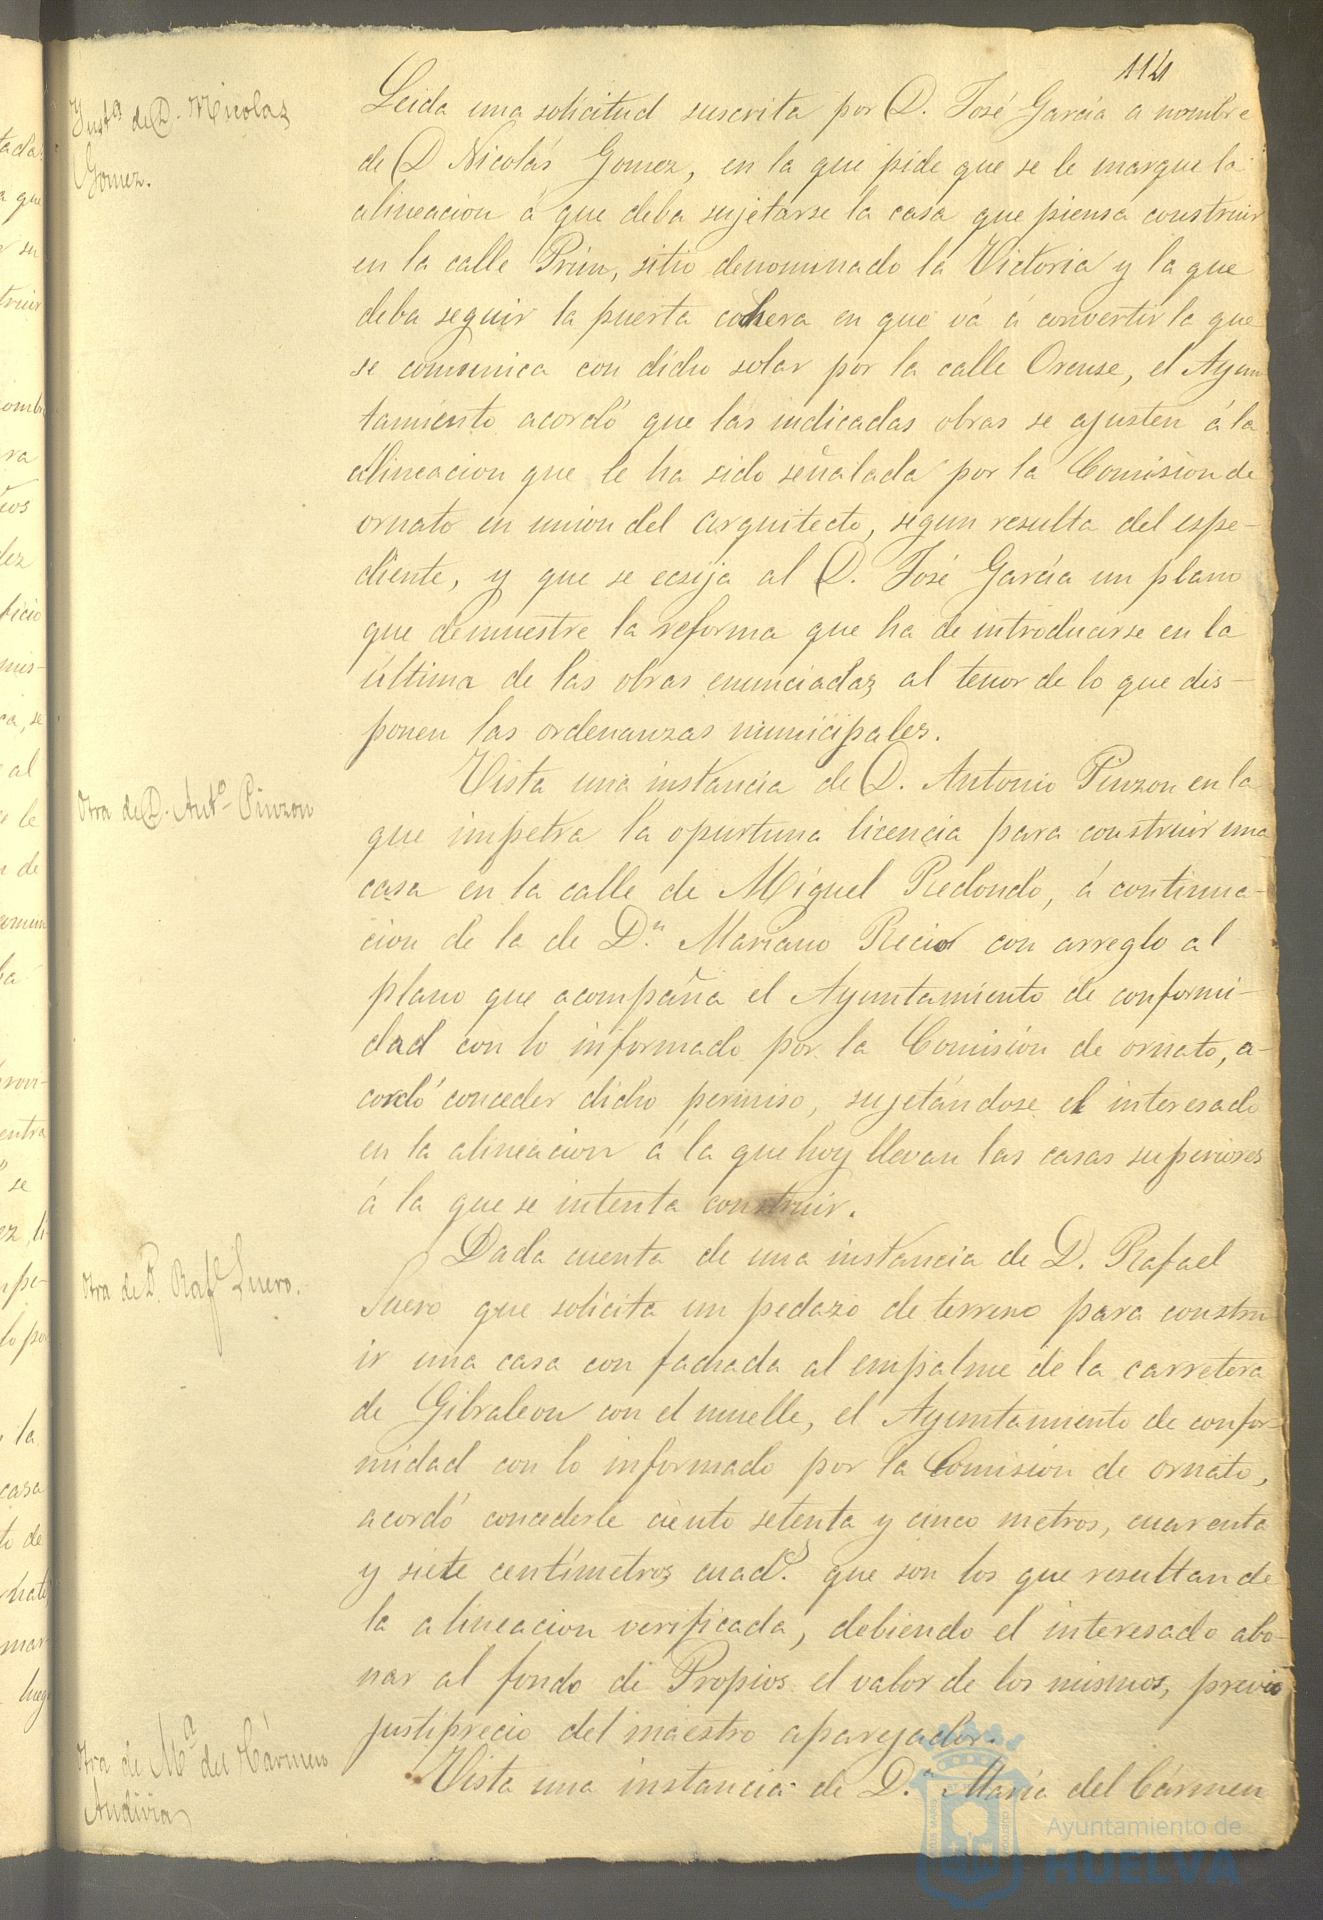 114
Insta de D. Nicolas
Gomez.
Leida una solicitud suscrita por D. José García a nombre
de D Nicolás Gomez, en la que pide que se le marque la
alineacion á que deba sujetarse la casa que piensa construir
en la calle Prim, sitio denominado la Victoria y la que
deba seguir la puerta cohera en que vá á convertir la que
se comunica con dicho solar por la calle Orense, el Ayun
tamiento acordó que las indicadas obras se ajusten á la
alineacion que le ha sido señalada por la Comision de
ornato en union del arquitecto, segun resulta del espe-
diente, y que se ecsija al D. José García un plano
que demuestre la reforma que ha de introducirse en la
última de las obras enunciadas al tenor de lo que dis-
ponen las ordenanzas municipales.
Otra de D. Anto Pinzon
Vista una instancia de D. Antonio Pinzon en la
que impetra la oportuna licencia para construir una
casa en la calle de Miguel Redondo, á continua-
cion de la de Dn Mariano Recio con arreglo al
plano que acompaña el Ayuntamiento de conformi-
dad con lo informado por la Comisión de ornato, a-
cordó conceder dicho permiso, sujetándose el interesado
en la alineacion á la que hoy llevan las casas superiores
á la que se intenta construir.
Otra de D. Rafl Suero.
Dada cuenta de una instancia de D. Rafael
Suero que solicita un pedazo de terreno para constru
ir una casa con fachada al empalme de la carretera
de Gibraleon con el muelle, el Ayuntamiento de confor-
midad con lo informado por la Comisión de ornato,
acordó concederle ciento setenta y cinco metros, cuarenta
y siete centímetros cuads. que son los que resultan de
la alineacion verificada, debiendo el interesado abo-
nar al fondo de Propios el valor de los mismos, previo
justiprecio del maestro aparejador.
Otra de Ma del Cármen
Andivia
Vista una instancia de D.a María del Cármen
Ayuntamiento de
HUELVA